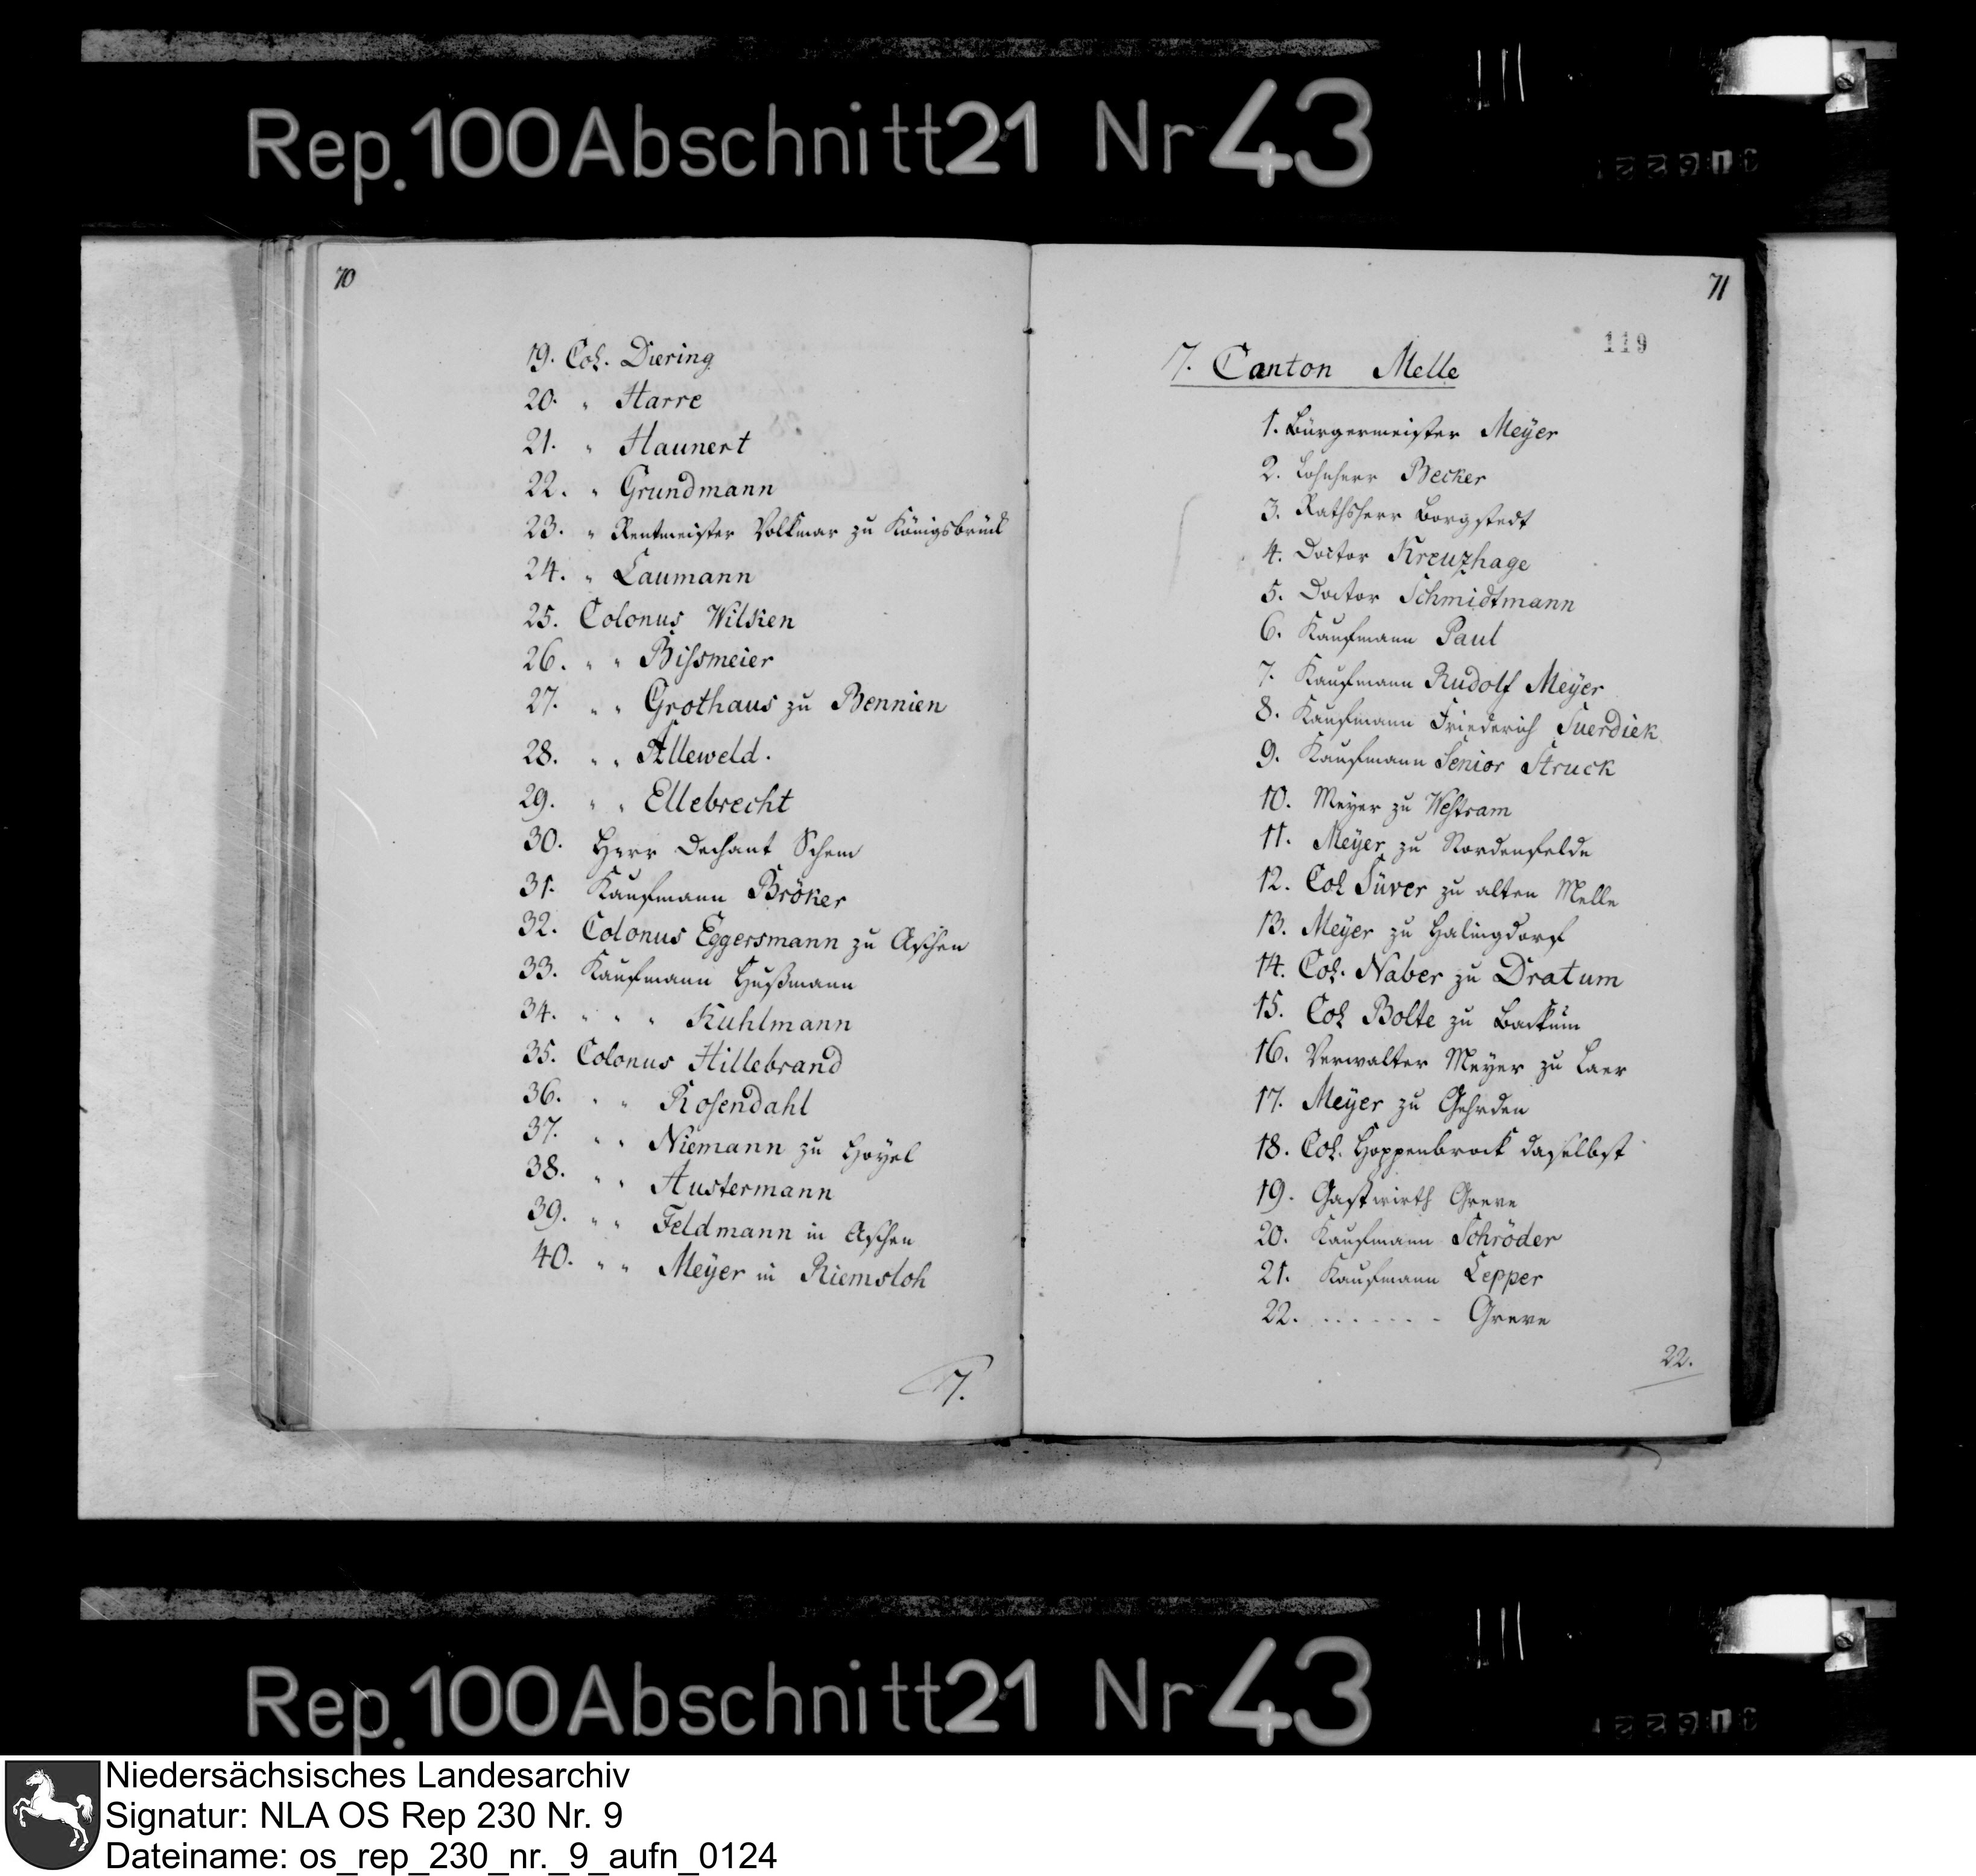 Rep. 100 Abschnitt 21 Nr 43
70
19. Col. Diering
20. " Harre
21. " Haunert
22. " Grundmann
23. " Rentmeister Volkmar zu Königsbrück
24. " Laumann
25. Colonus Wilken
26. " " Bissmeier
27. " " Grothaus zu Bennien
28. " " Alleweld.
29. " " Ellebrecht
30. Herr Dechant Schem
31. Kaufmann Bröker
32. Colonus Eggersmann zu Aschen
33. Kaufmann Hußmann
34. " " " Kuhlmann
35. Colonus Hillebrand
36. " " Rosendahl
37. " " Niemann zu Hoyel
38. " " Austermann
39. " " Feldmann in Aschen
40. " " Meyer in Riemsloh
7.
71
119
7. Canton Melle
1. Bürgermeister Meyer
2. Lohnherr Becker
3. Rathsherr Borgstedt
4. Doctor Kreuzhage
5. Doctor Schmidtmann
6. Kaufmann Paul
7. Kaufmann Rudolf Meyer
8. Kaufmann Friederich Suerdiek
9. Kaufmann Senior Struck
10. Meyer zu Westram
11. Meyer zu Nordenfelde
12. Col Süver zu alten Melle
13. Meyer zu Halingdorf
14. Col. Naber zu Dratum
15. Col Bolte zu Backum
16. Verwalter Meyer zu Laer
17. Meyer zu Gehrden
18. Col. Hoppenbrock daselbst
19. Gastwirth Greve
20. Kaufmann Schröder
21. Kaufmann Lepper
22. . . . . . . - Greve
22.
Rep. 100 Abschnitt 21 Nr 43
Niedersächsisches Landesarchiv
Signatur: NLA OS Rep 230 Nr. 9
Dateiname: os_rep_230_nr._9_aufn_0124